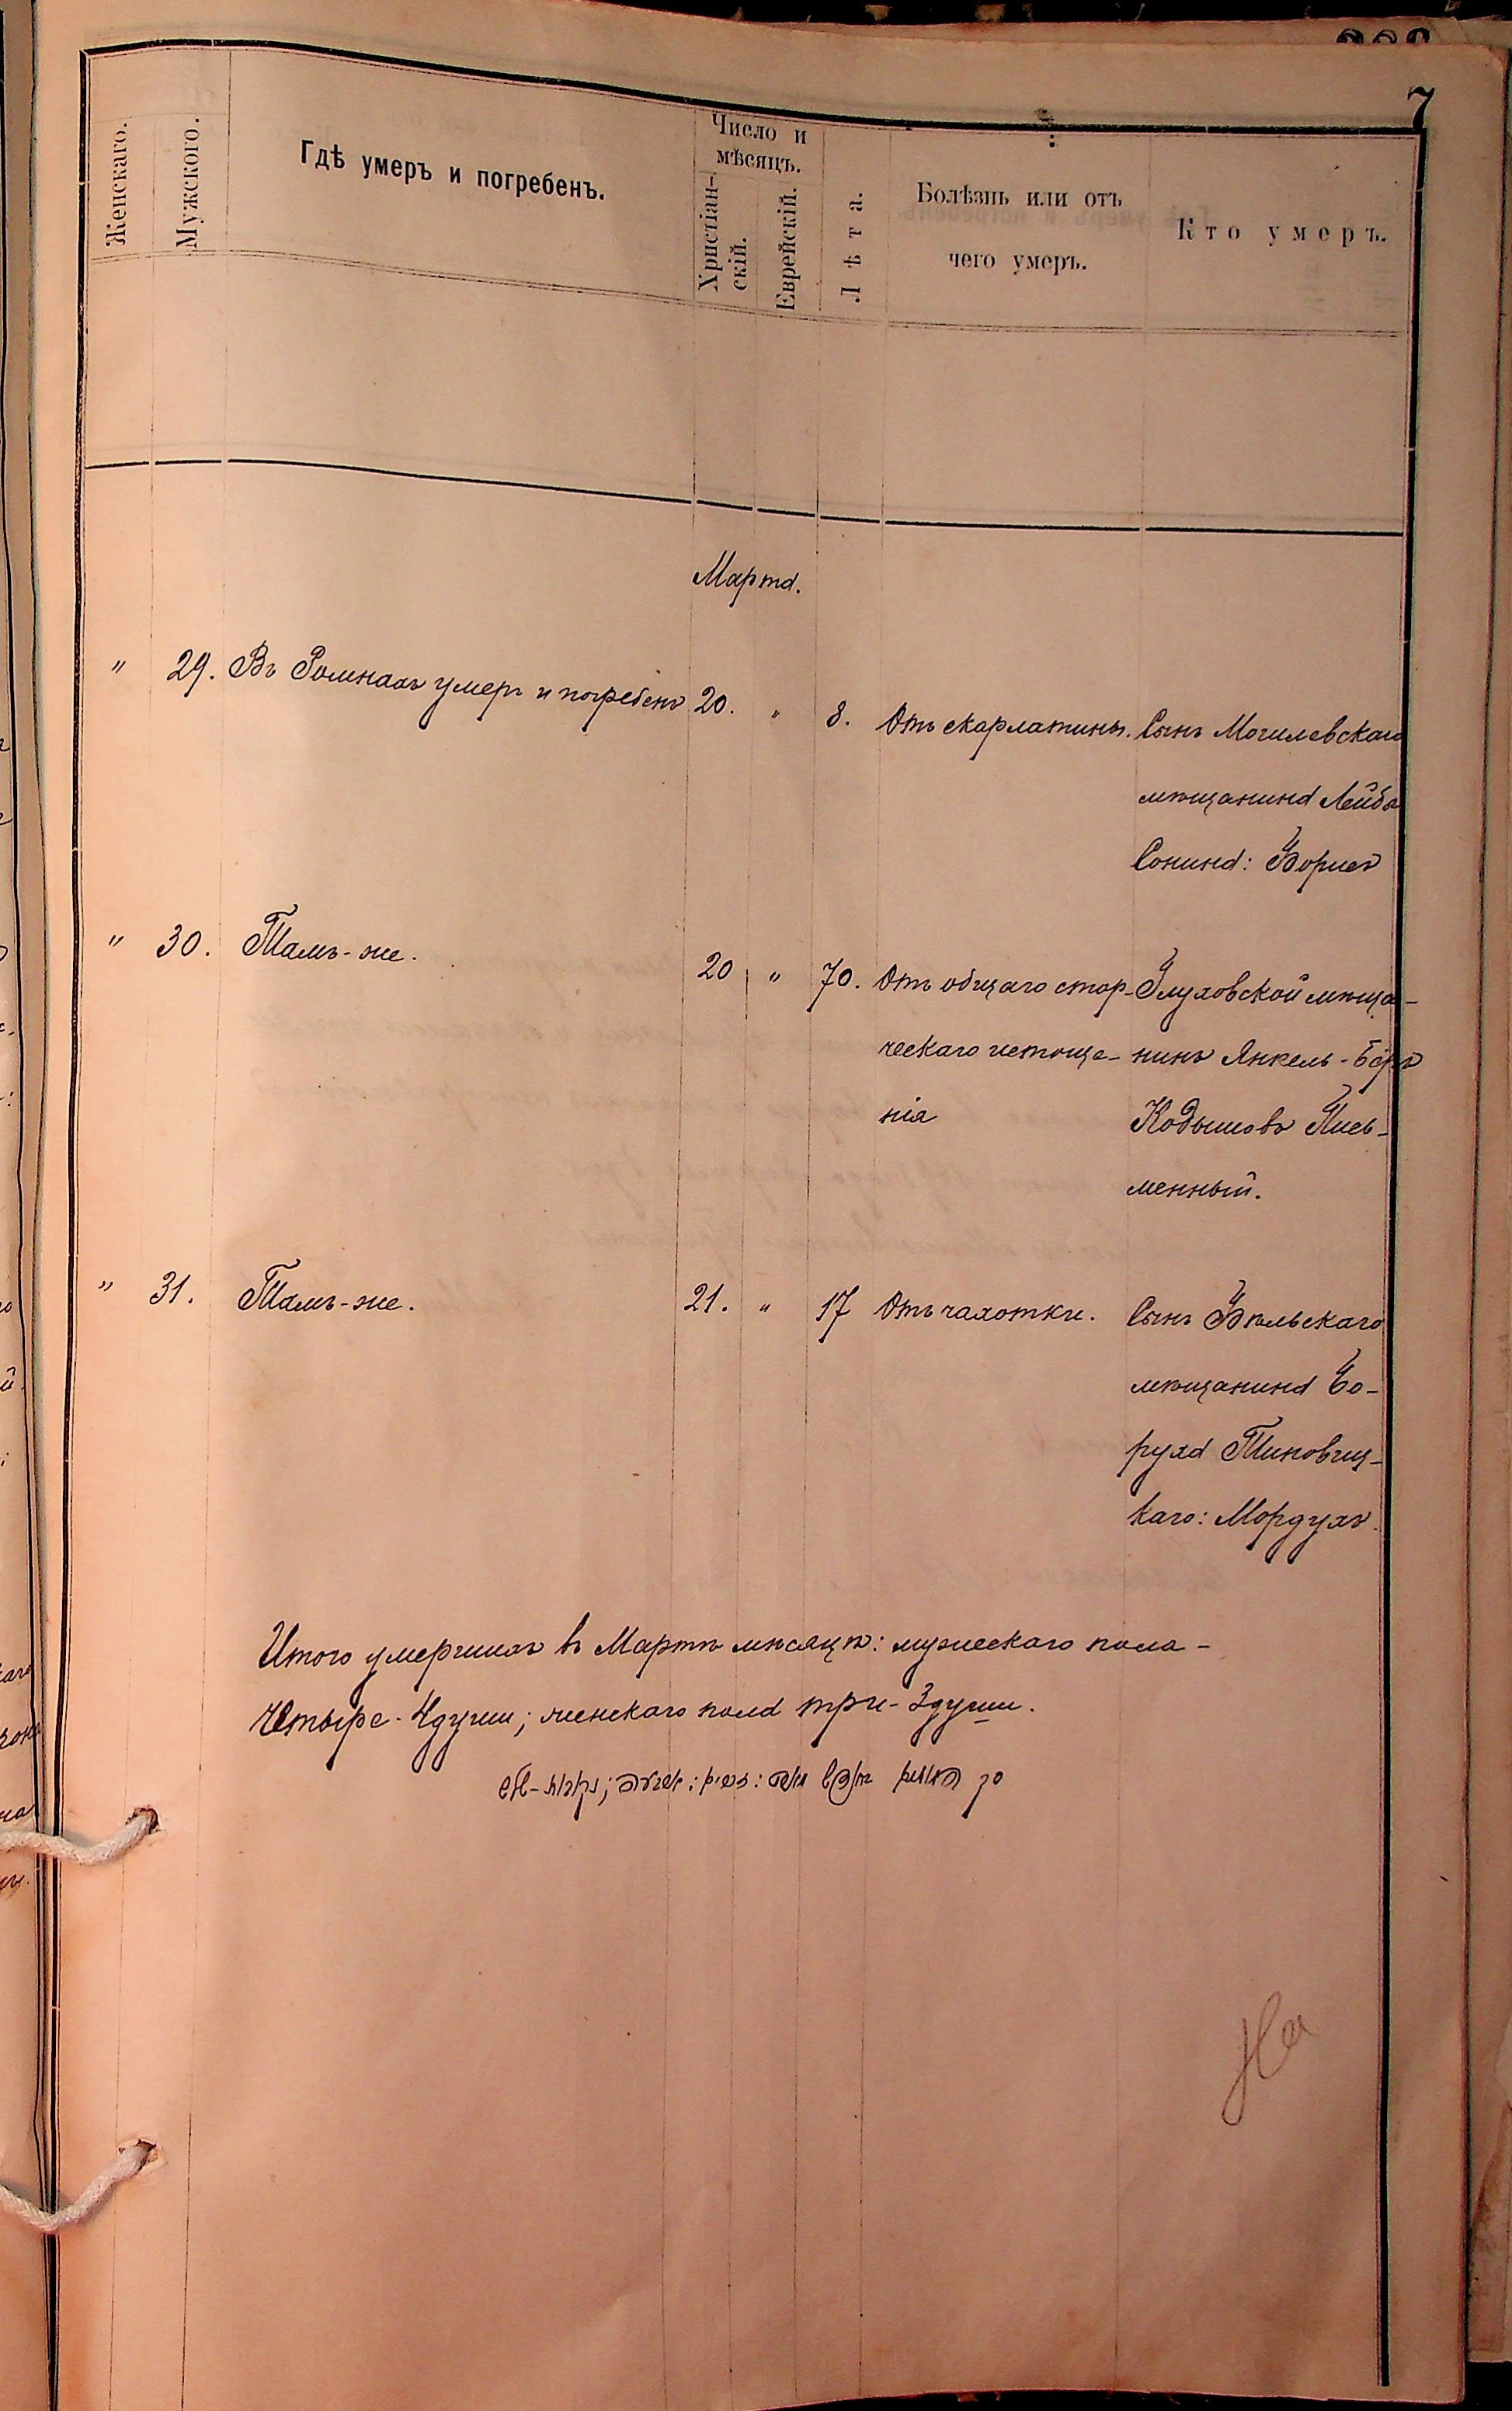 7
Женскаго.
Мужского.
Гдѣ умеръ и погребенъ.
Число и
мѣсяцъ.
Христіан-
скій.
Еврейскій.
Лѣта.
Болѣзнь или отъ
чего умеръ.
Кто умеръ.
Марта.
" 29. Въ Ромнахъ умеръ и погребенъ 20. " 8. Отъ скарлатины. Сынъ Могилевскаго
мѣщанина Лейбы
Сонина: Борисъ
" 30. Тамъ-же. 20 " 70. Отъ общаго стар- Глуховской мѣща-
ческаго истоще- нинъ Янкель-Беръ
нія Кадышовъ Пись-
менный.
" 31. Тамъ-же. 21. " 17 Отъ чахотки. Сынъ Бѣльскаго
мѣщанина Бо-
руха Тиковиц-
каго: Мордухъ.
Итого умершихъ въ Мартѣ мѣсяцѣ: мужескаго пола-
четыре-4 души; женскаго пола три-3 души.
На